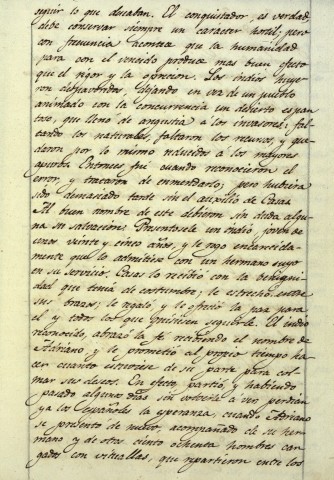 seguir lo que deseaban. El conquistador, es verdad,
debe conservar siempre un caracter hostil, pero
con frecuencia acontece que la humanidad
para con el vencido produce mas buen efecto
que el rigor y la opresion. Los indios huye-
ron despavoridos, dejando en vez de un pueblo
animado con la concurrencia un desierto espan-
toso, que lleno de angustia á los invasores: fal-
tando los naturales, faltaron los recursos, y que-
daron por lo mismo reducidos á los mayores
apuros. Entonces fué cuando reconocieron el
error, y trataron de enmendarlo; pero hubiera
sido demasiado tarde sin el auxilio de Casas.
Al buen nombre de este debieron sin duda algu-
na su salvacion. Presentosele un indio, joven de
unos veinte y cinco años, y le rogó encarecida-
mente que lo admitiese con un hermano suyo
en su servicio. Casas lo recibió con la benigni-
dad que tenia de costumbre; le estrechó entre
sus brazos, le regaló, y le ofreció la paz para
él y todos los que quisiesen seguirle. El indio
reconocido, abrazó la fé recibiendo el nombre de
Adriano, y le prometió al propio tiempo ha-
cer cuanto estuviese de su parte para col-
mar sus deseos. En efecto, partió, y habiendo
pasado algunos dias sin volverle á ver perdian
ya los Españoles la esperanza, cuando Adriano
se presentó de nuevo, acompañado de su her-
mano y de otros ciento ochenta hombres car-
gados con vituallas, que repartieron entre los